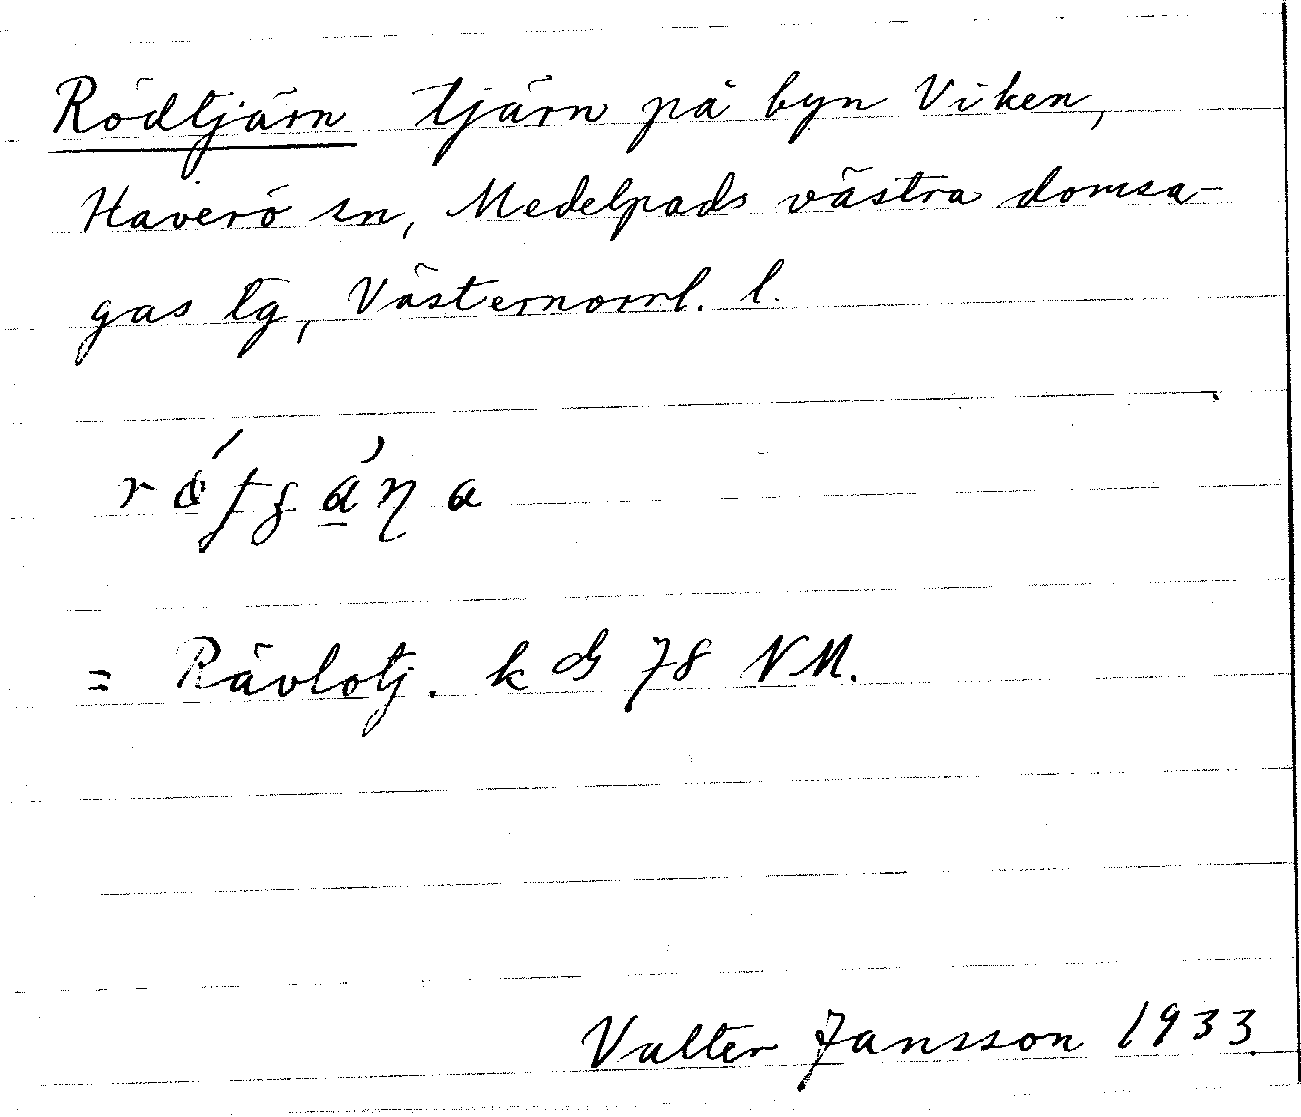 Rödtjärn tjärn på byn Viken,
Haverö sn, Medelpads västra domsa-
gas tg, Västernorrl. l.
= Rävlotj. k ds 78 NM.
Valter Jansson 1933